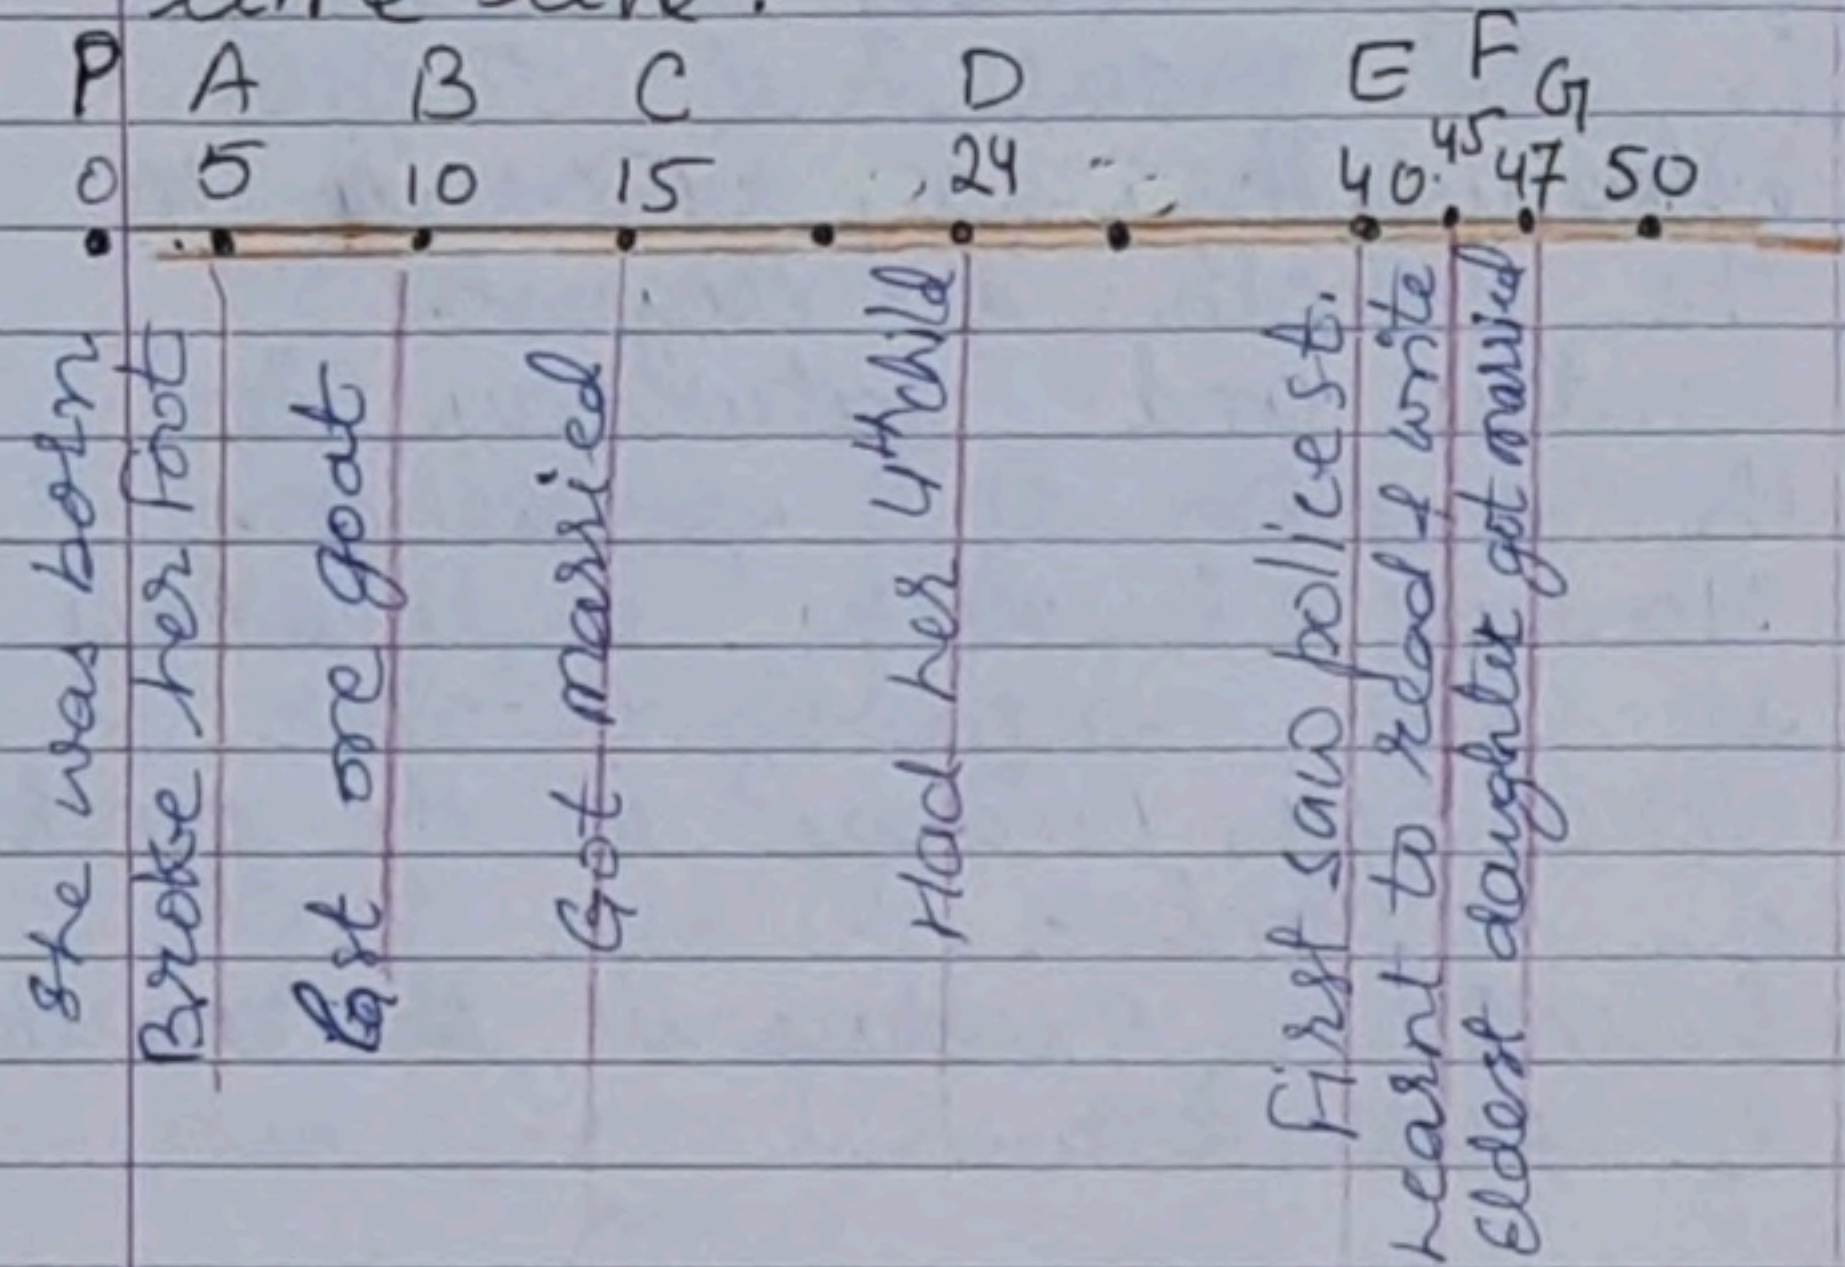 P A B C D E F G
0 5 10 15 24 40 45 47 50
She was born
Broke her foot
Lost one goat
Got married
Had her 4th child
First saw police st.
Learnt to read & write
Eldest daughter got married